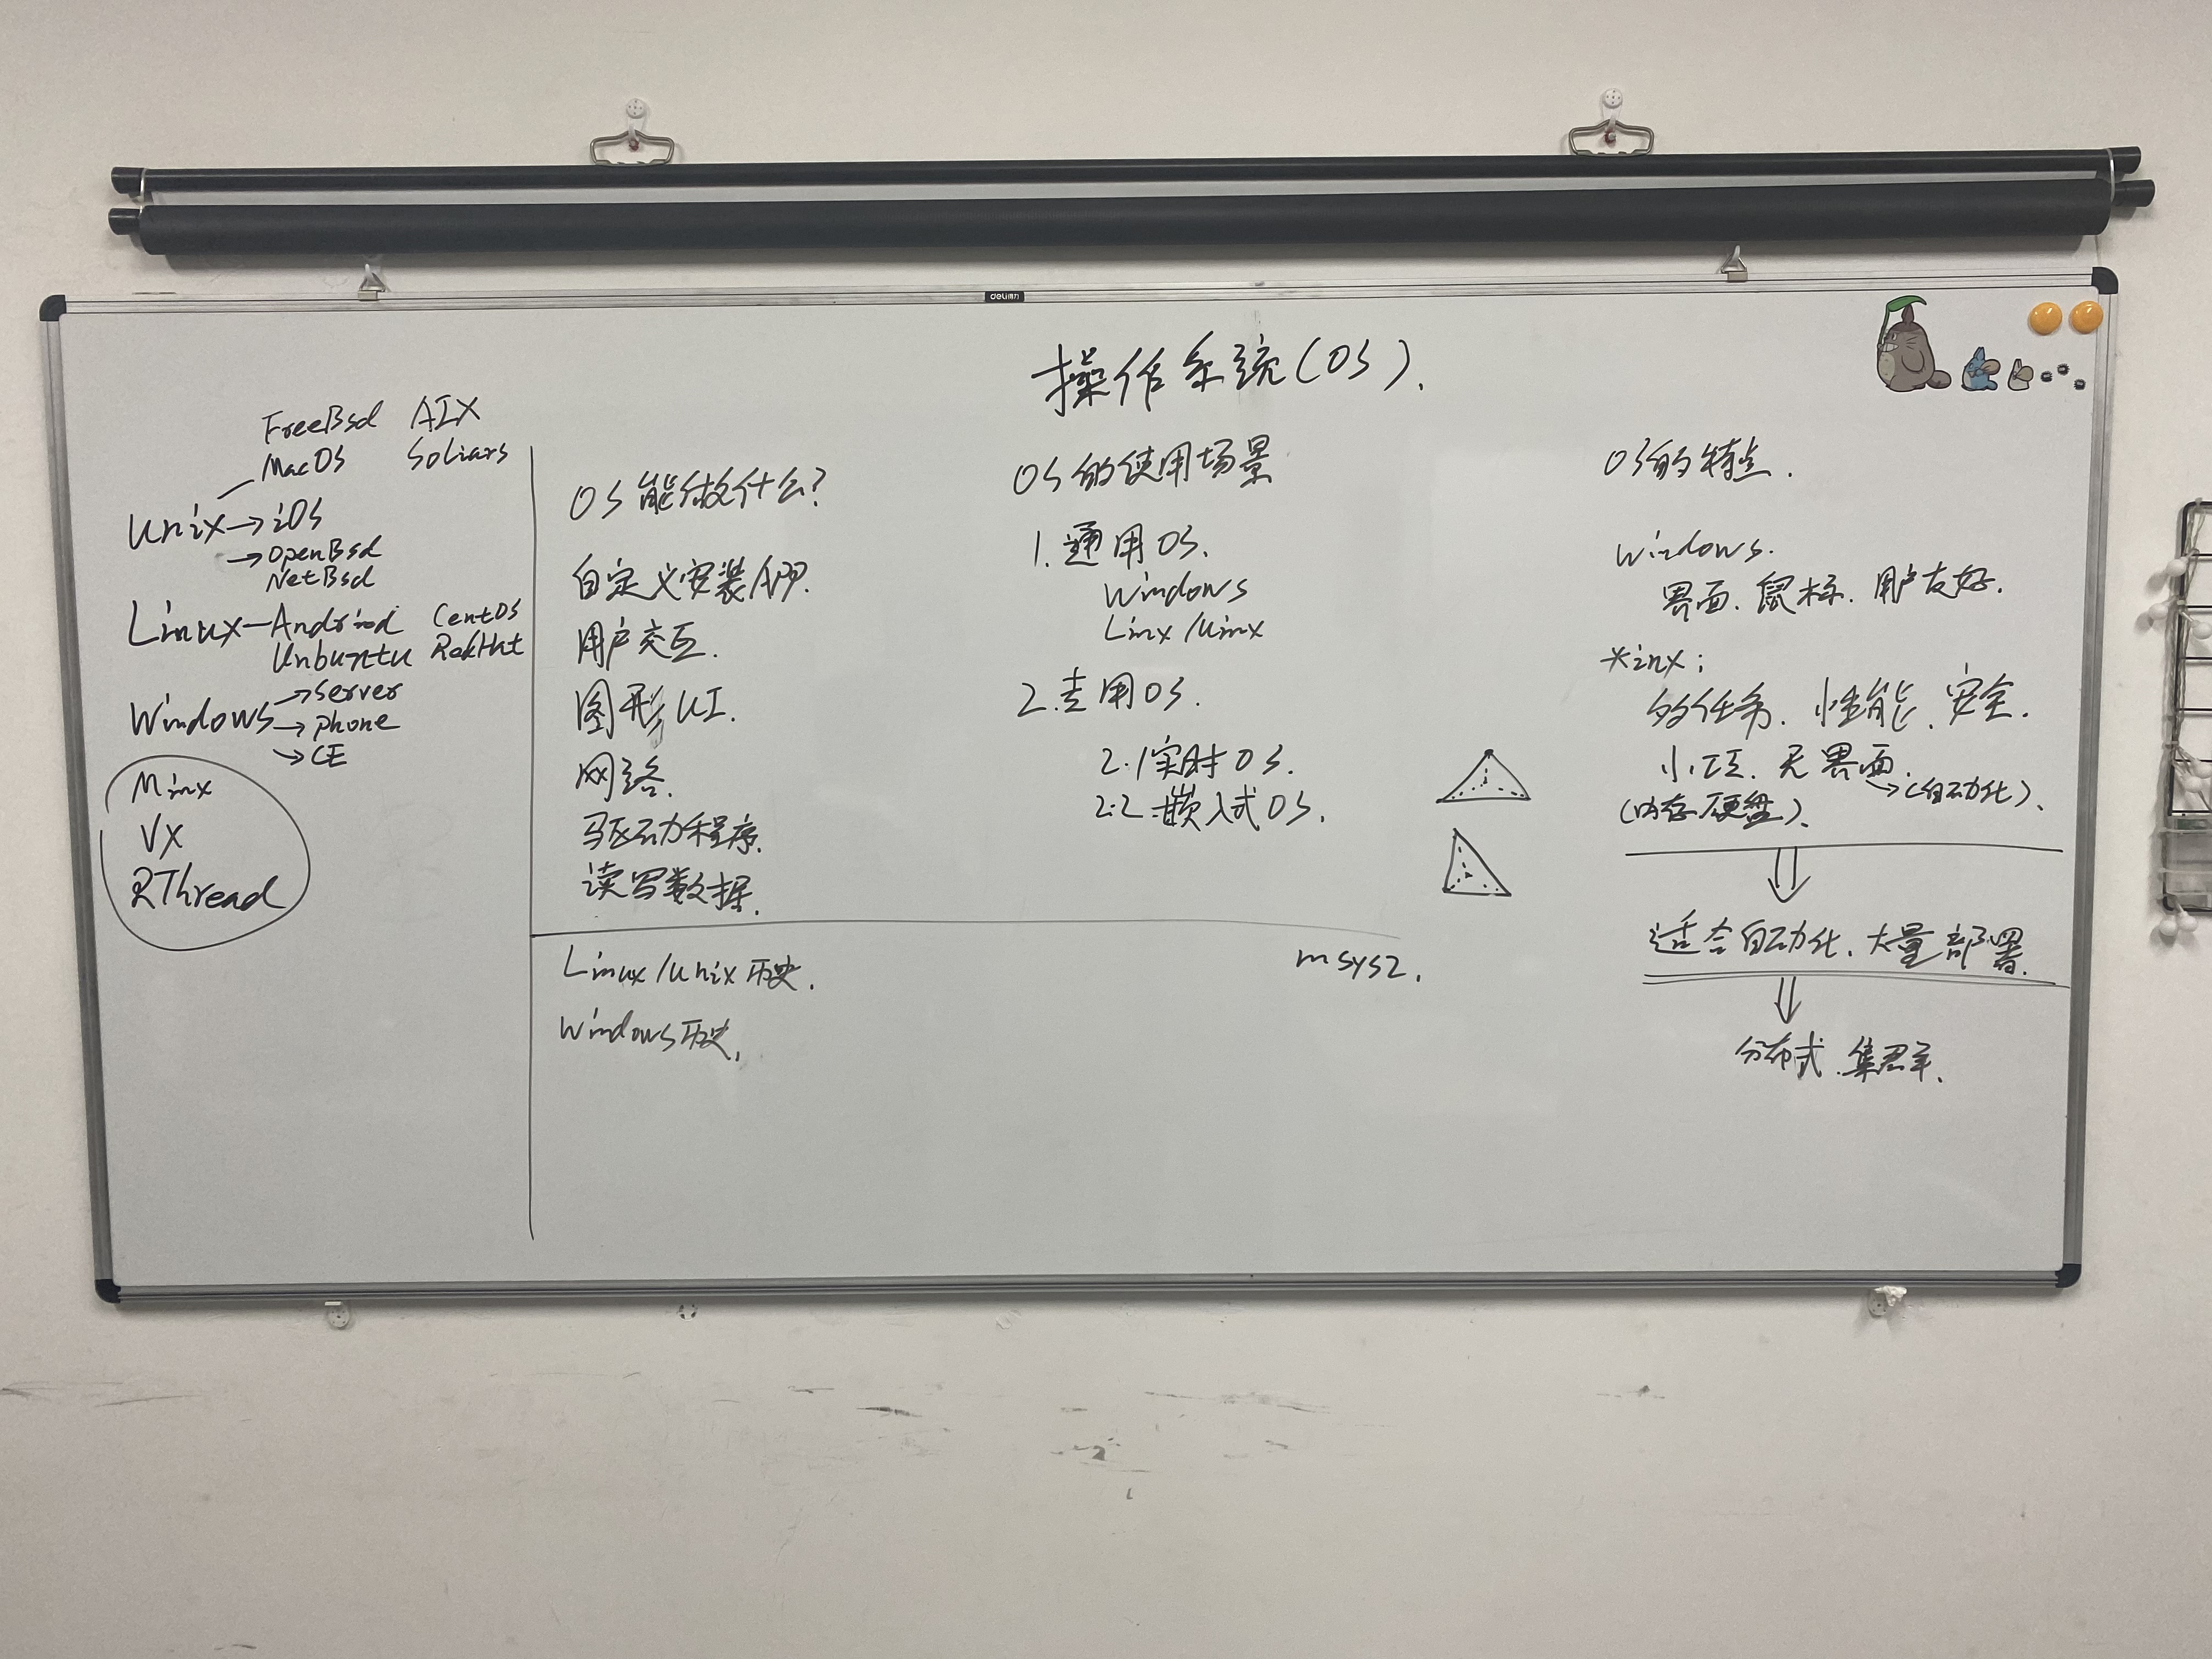 deli得力
操作系统(OS).
FreeBsd AIX
MacOS Soliars
Unix→iOS
→OpenBsd
NetBsd
Linux—Andriod CentOS
Unbuntu RedHat
Windows→Server
→phone
→CE
Minx
VX
RThread
OS能做什么?
自定义安装APP.
用户交互.
图形UI.
网络.
驱动程序.
读写数据.
Linux/Unix历史.
Windows历史.
OS的使用场景
1.通用OS.
Windows
Linx/Uinx
2.专用OS.
2.1实时OS.
2.2.嵌入式OS.
msys2.
OS的特点.
Windows.
界面.鼠标.用户友好.
*inx:
多任务.性能.安全.
小巧.无界面.
→(自动化).
(内存硬盘).
适合自动化.大量部署.
分布式.集群.